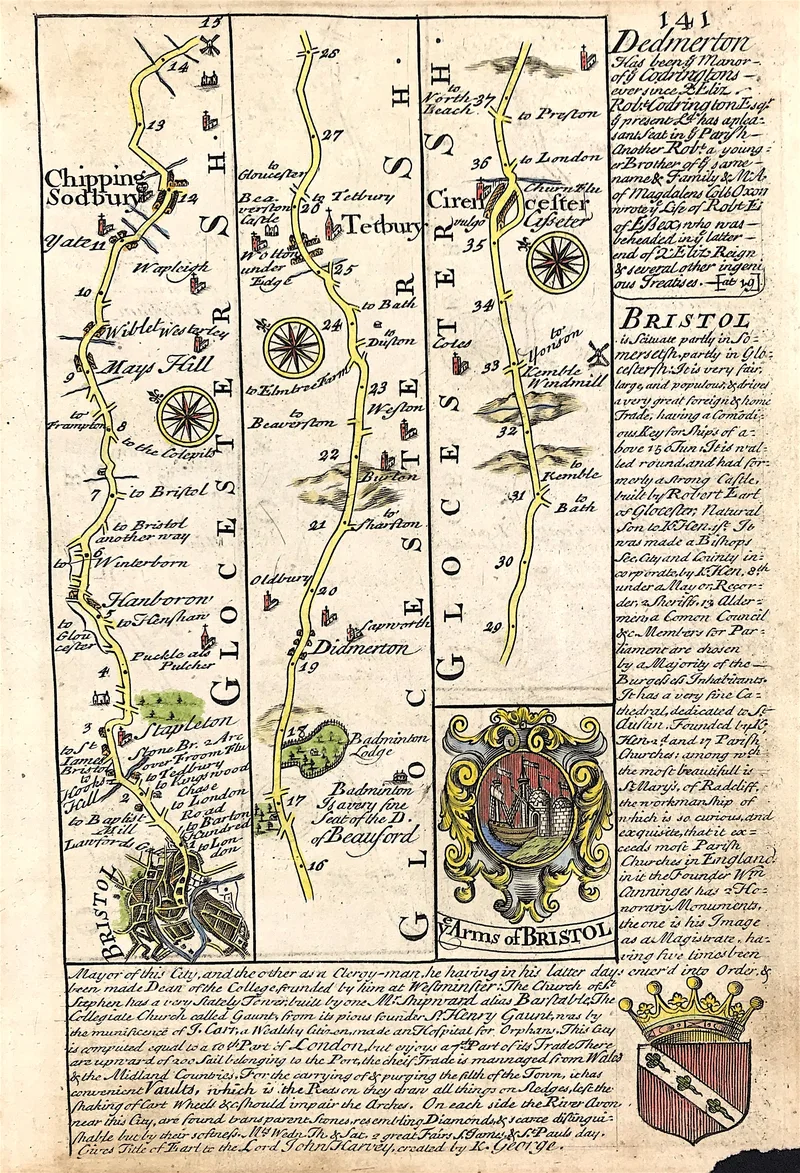 141
Dedmerton
Has been yͤ Manor
of yͤ Codringtons
ever since Q. Eliz.
Robᵗ Codrington Esqʳ
yͤ present Lᵈ has a plea=
sant Seat in yͤ Parish
Another Robᵗ a young=
er Brother of yͤ same
name & Family & M.A.
of Magdalens Coll: Oxon
wrote yͤ Life of Robᵗ E:
of Essex, who was
beheaded in yͤ latter
end of Q. Eliz. Reign
& several other ingeni
ous Treatises.
BRISTOL
is Scituate partly in So=
mersetsh. partly in Glo=
cestersh: It is very fair,
large, and populous, & drives
a very great foreign & home
Trade, having a Comodi=
ous Key for Ships of a=
bove 150 Tun: It is wal=
led round, and had for=
merly a strong Castle,
built by Robert Earl
of Glocester, Natural
Son to K. Hen. 1ˢᵗ. It
was made a Bishops
See, City and County in=
corporate, by K. Hen. 8ᵗʰ
under a Mayor, Recor=
der, 2 Sheriffs, 12 Alder=
men a Comon Council
&c. Members for Par=
liament are chosen
by a Majority of the
Burgesses Inhabitants.
It has a very fine Ca=
thedral, dedicated to Sᵗ
Austin. Founded by K.
Hen. 2ᵈ. and 17 Parish
Churches; among wᶜʰ
the most beautifull is
Sᵗ Mary's, of Radcliff,
the workmanship of
which is so curious, and
exquisite, that it ex=
ceeds most Parish
Churches in England
in it the Founder Wᵐ
Canninges has 2 Ho=
norary Monuments,
the one is his Image
as a Magistrate, ha=
ving five times been
Mayor of this City, and the other as a Clergy-man, he having in his latter days enter'd into Order, &
been made Dean of the College founded by him at Westminster: The Church of Sᵗ
Stephen has a very Stately Tower built by one Mʳ Shipward alias Barstable, The
Collegiate Church called Gaunts, from its pious founder Sʳ. Henry Gaunt, was by
the munificence of T. Carr, a Wealthy Citizen, made an Hospital for Orphans. This City
is computed equal to a 10ᵗʰ Part of London, but enjoys a 7ᵗʰ Part of its Trade There
are upward of 200 Sail belonging to the Port, the cheif Trade is mannaged from Wales
& the Midland Countries. For the carrying of & purging the filth of the Town, it has
convenient Vaults, which is the Reason they draw all things on Sledges, lest the
shaking of Cart Wheels &c should impair the Arches. On each side the River Avon
near this City, are found transparent Stones, resembling Diamonds, & scarce distingui=
shable but by their softness. Mᵗˢ Wedn. Th. & Sat. 2 great Fairs Sᵗ James, & Sᵗ Pauls day.
Gives Title of Earl to the Lord John Harvey, created by K. George.
15
14
13
Chipping
Sodbury
12
Yate 11
Wapleigh
10
Wiblet Westerley
9
Mays Hill
to
Frampton
8
to the Colepits
7
to Bristol
to Bristol
another way
6
to Winterborn
Hanboron
5
to Henshaw
to
Glou
cester
Puckle als
Pulcher
4
3
Stapleton
to Sᵗ
James
Bristol
Stone Br. 2 Arc
over Froom Flu
to Tedbury
Hooks
Hill
to Kingswood
Chase
2
to London
Road
to Baptist
Mill
to Barton
Hundred
1
to Lon
don
BRISTOL
GLOCESTER SH.
28
27
to
Gloucester
Bea
verston
Castle
to Tetbury
26
Tetbury
Wotton
under
Edge
25
to Bath
24
to
Duston
to Elmtree Farm
23
Weston
to
Beaverston
22
Burton
21
to
Sharston
Oldbury
20
Sapworth
Didmerton
19
18
Badminton
Lodge
Badminton
Is a very fine
Seat of the D.
of Beauford
17
16
GLOCESTER SH.
to
North
Beach
37
to Preston
36
to London
Churn Flu
Ciren cester
vulgo
Cisseter
35
34
to
Yonson
Coles
33
Kemble
Windmill
32
to
Kemble
31
to
Bath
30
29
GLOCESTER SH.
yͤ Arms of BRISTOL